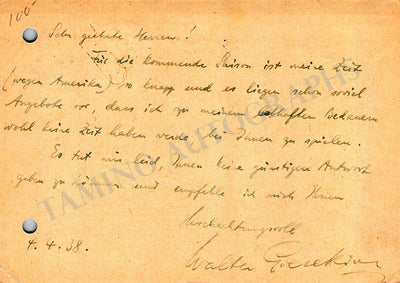 100
Sehr geehrte Herren!
Für die kommende Saison ist meine Zeit
(wegen Amerika) so knapp und es liegen schon soviel
Angebote vor, dass ich zu meinem lebhaften Bedauern
wohl keine Zeit haben werde, bei Ihnen zu spielen.
Es tut mir leid, Ihnen keine günstigere Antwort
geben zu können und empfehle ich mich Ihnen
Hochachtungsvoll
4.4.38. Walter Gieseking
TAMINO AUTOGRAPHS